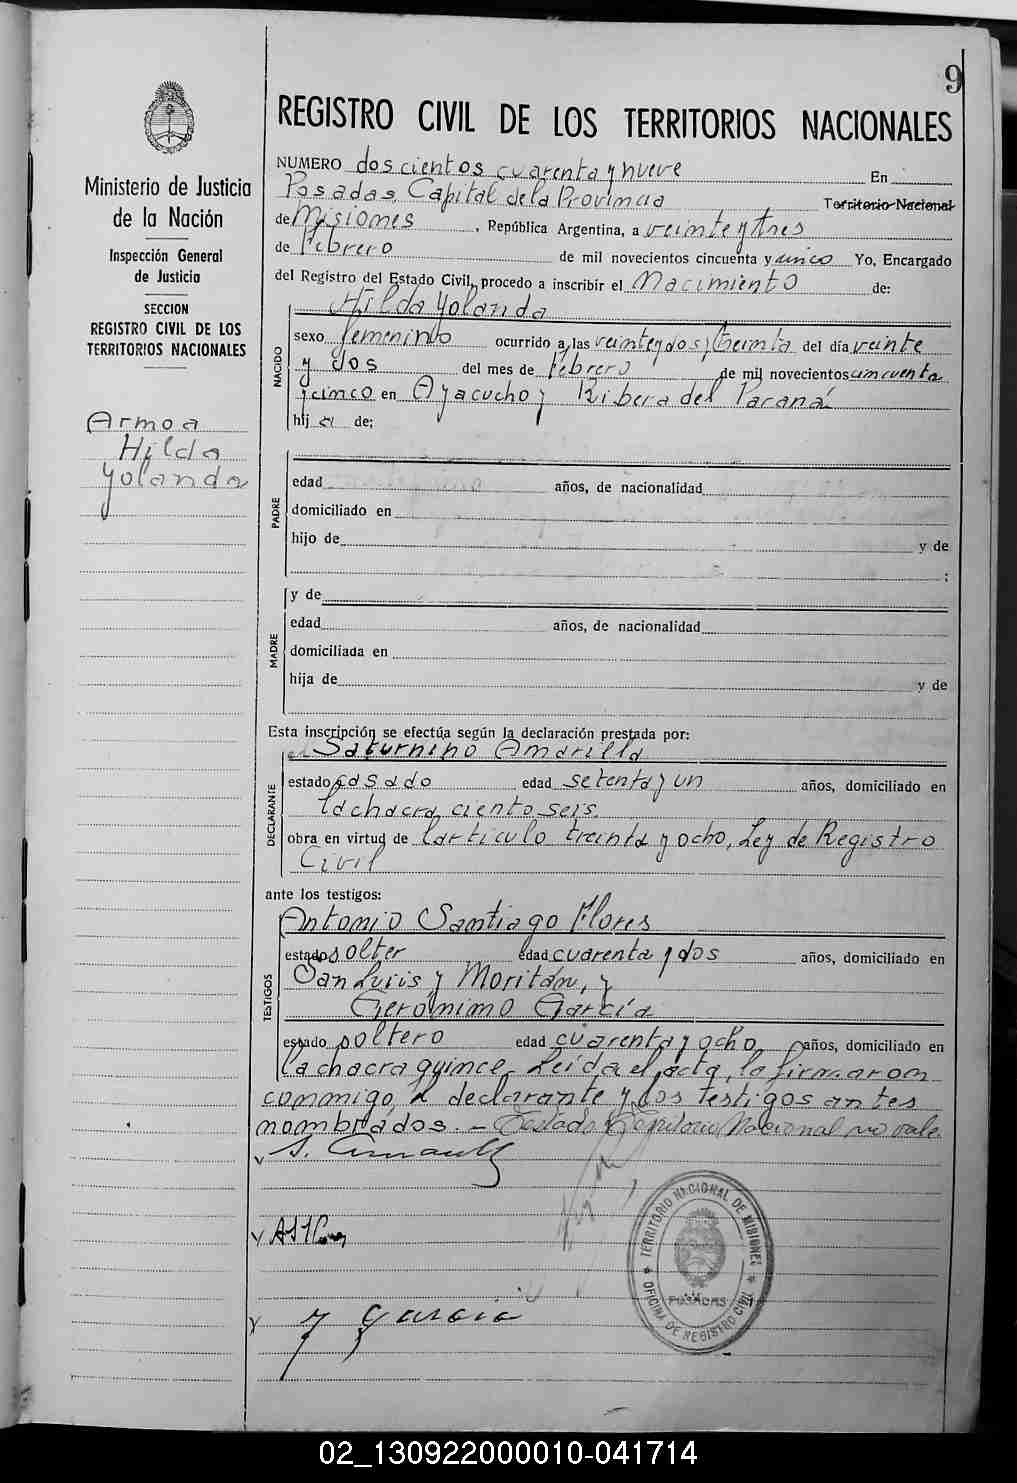 9
REGISTRO CIVIL DE LOS TERRITORIOS NACIONALES
Ministerio de Justicia
de la Nación
Inspección General
de Justicia
SECCION
REGISTRO CIVIL DE LOS
TERRITORIOS NACIONALES
Armoa
Hilda
Yolanda
NUMERO doscientos cuarenta y nueve En
Posadas, Capital de la Provincia Territorio Nacional
de Misiones, República Argentina, a veinte y tres
de febrero de mil novecientos cincuenta y cinco Yo, Encargado
del Registro del Estado Civil, procedo a inscribir el Nacimiento de:
Hilda Yolanda
NACIDO
sexo femenino ocurrido a las veinte y dos y treinta del día veinte
y dos del mes de febrero de mil novecientos cincuenta
y cinco en Ayacucho y Ribera del Paraná
hij a de;
PADRE
edad años, de nacionalidad
domiciliado en
hijo de y de
;
MADRE
y de
edad años, de nacionalidad
domiciliada en
hija de y de
Esta inscripción se efectúa según la declaración prestada por:
DECLARANTE
Saturnino Amarilla
estado casado edad setenta y un años, domiciliado en
la chacra ciento seis.
obra en virtud de l'artículo treinta y ocho, Ley de Registro
Civil
ante los testigos:
TESTIGOS
Antonio Santiago Flores
estado solter edad cuarenta y dos años, domiciliado en
San Luis y Moritán, y
Gerónimo García
estado soltero edad cuarenta y ocho años, domiciliado en
la chacra quince. Leída el acta, la firmaron
conmigo, el declarante y los testigos antes
nombrados. - Testado Territorio Nacional no vale.
y García
TERRITORIO NACIONAL DE MISIONES
POSADAS
OFICINA DE REGISTRO CIVIL
02_130922000010-041714